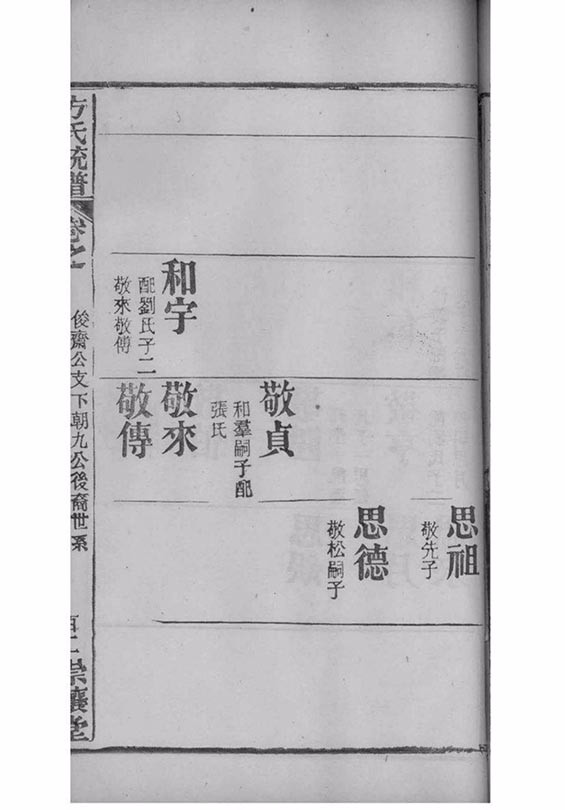 思祖
敬先子
思德
敬松嗣子
敬貞
和羣嗣子配
張氏
和宇
配劉氏子二
敬來敬傳
敬來
敬傳
方氏統譜
卷之一
俊齋公支下朝九公後裔世系
崇讓堂